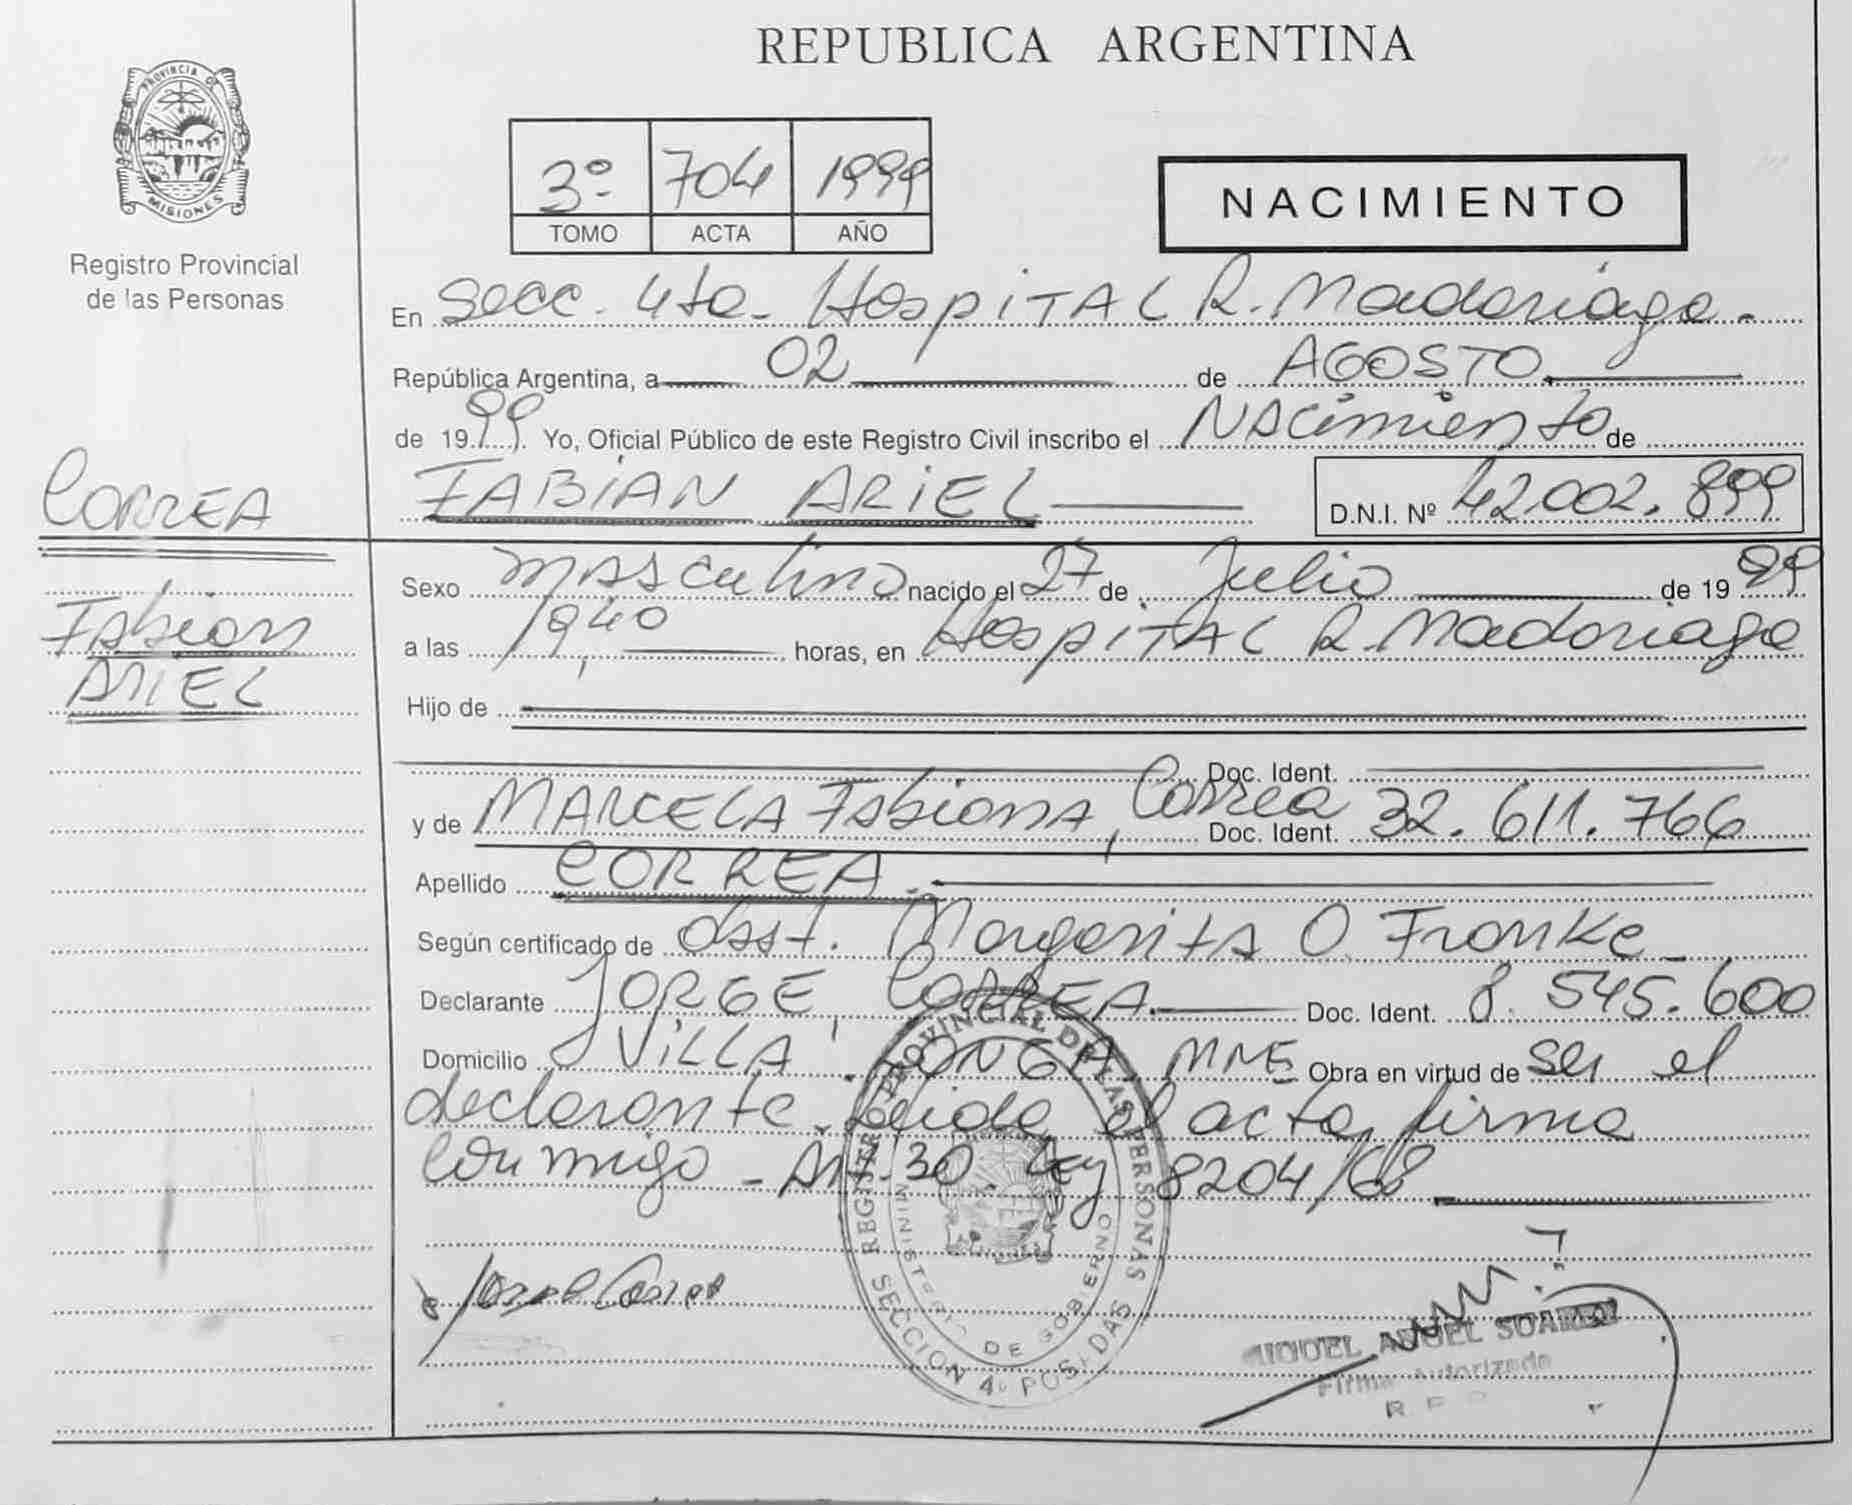 REPUBLICA ARGENTINA
PROVINCIA DE
MISIONES
Registro Provincial
de las Personas
3º 704 1999
TOMO ACTA AÑO
NACIMIENTO
En Secc. 4ta. Hospital R. Madariaga.
República Argentina, a 02 de AGOSTO
de 1999. Yo, Oficial Público de este Registro Civil inscribo el Nacimiento de
CORREA
FABIAN ARIEL D.N.I. Nº 42.002.899
Fabian
ARIEL
Sexo masculino nacido el 27 de Julio de 1999
a las 19,40 horas, en Hospital R. Madariaga
Hijo de
Doc. Ident.
y de MARCELA Fabiana, Correa Doc. Ident. 32.611.766
Apellido CORREA.
Según certificado de Obst. Margarita O. Franke
Declarante JORGE CORREA. Doc. Ident. 8.545.600
Domicilio VILLA LONGA, MNE Obra en virtud de ser el
declarante. Leida el acta, firma
conmigo - Art. 30 Ley 8204/68
REGISTRO PROVINCIAL DE LAS PERSONAS
MINISTERIO DE GOBIERNO
SECCION 4º POSADAS
Jorge Correa
MIGUEL ANGEL SUAREZ
Firma Autorizada